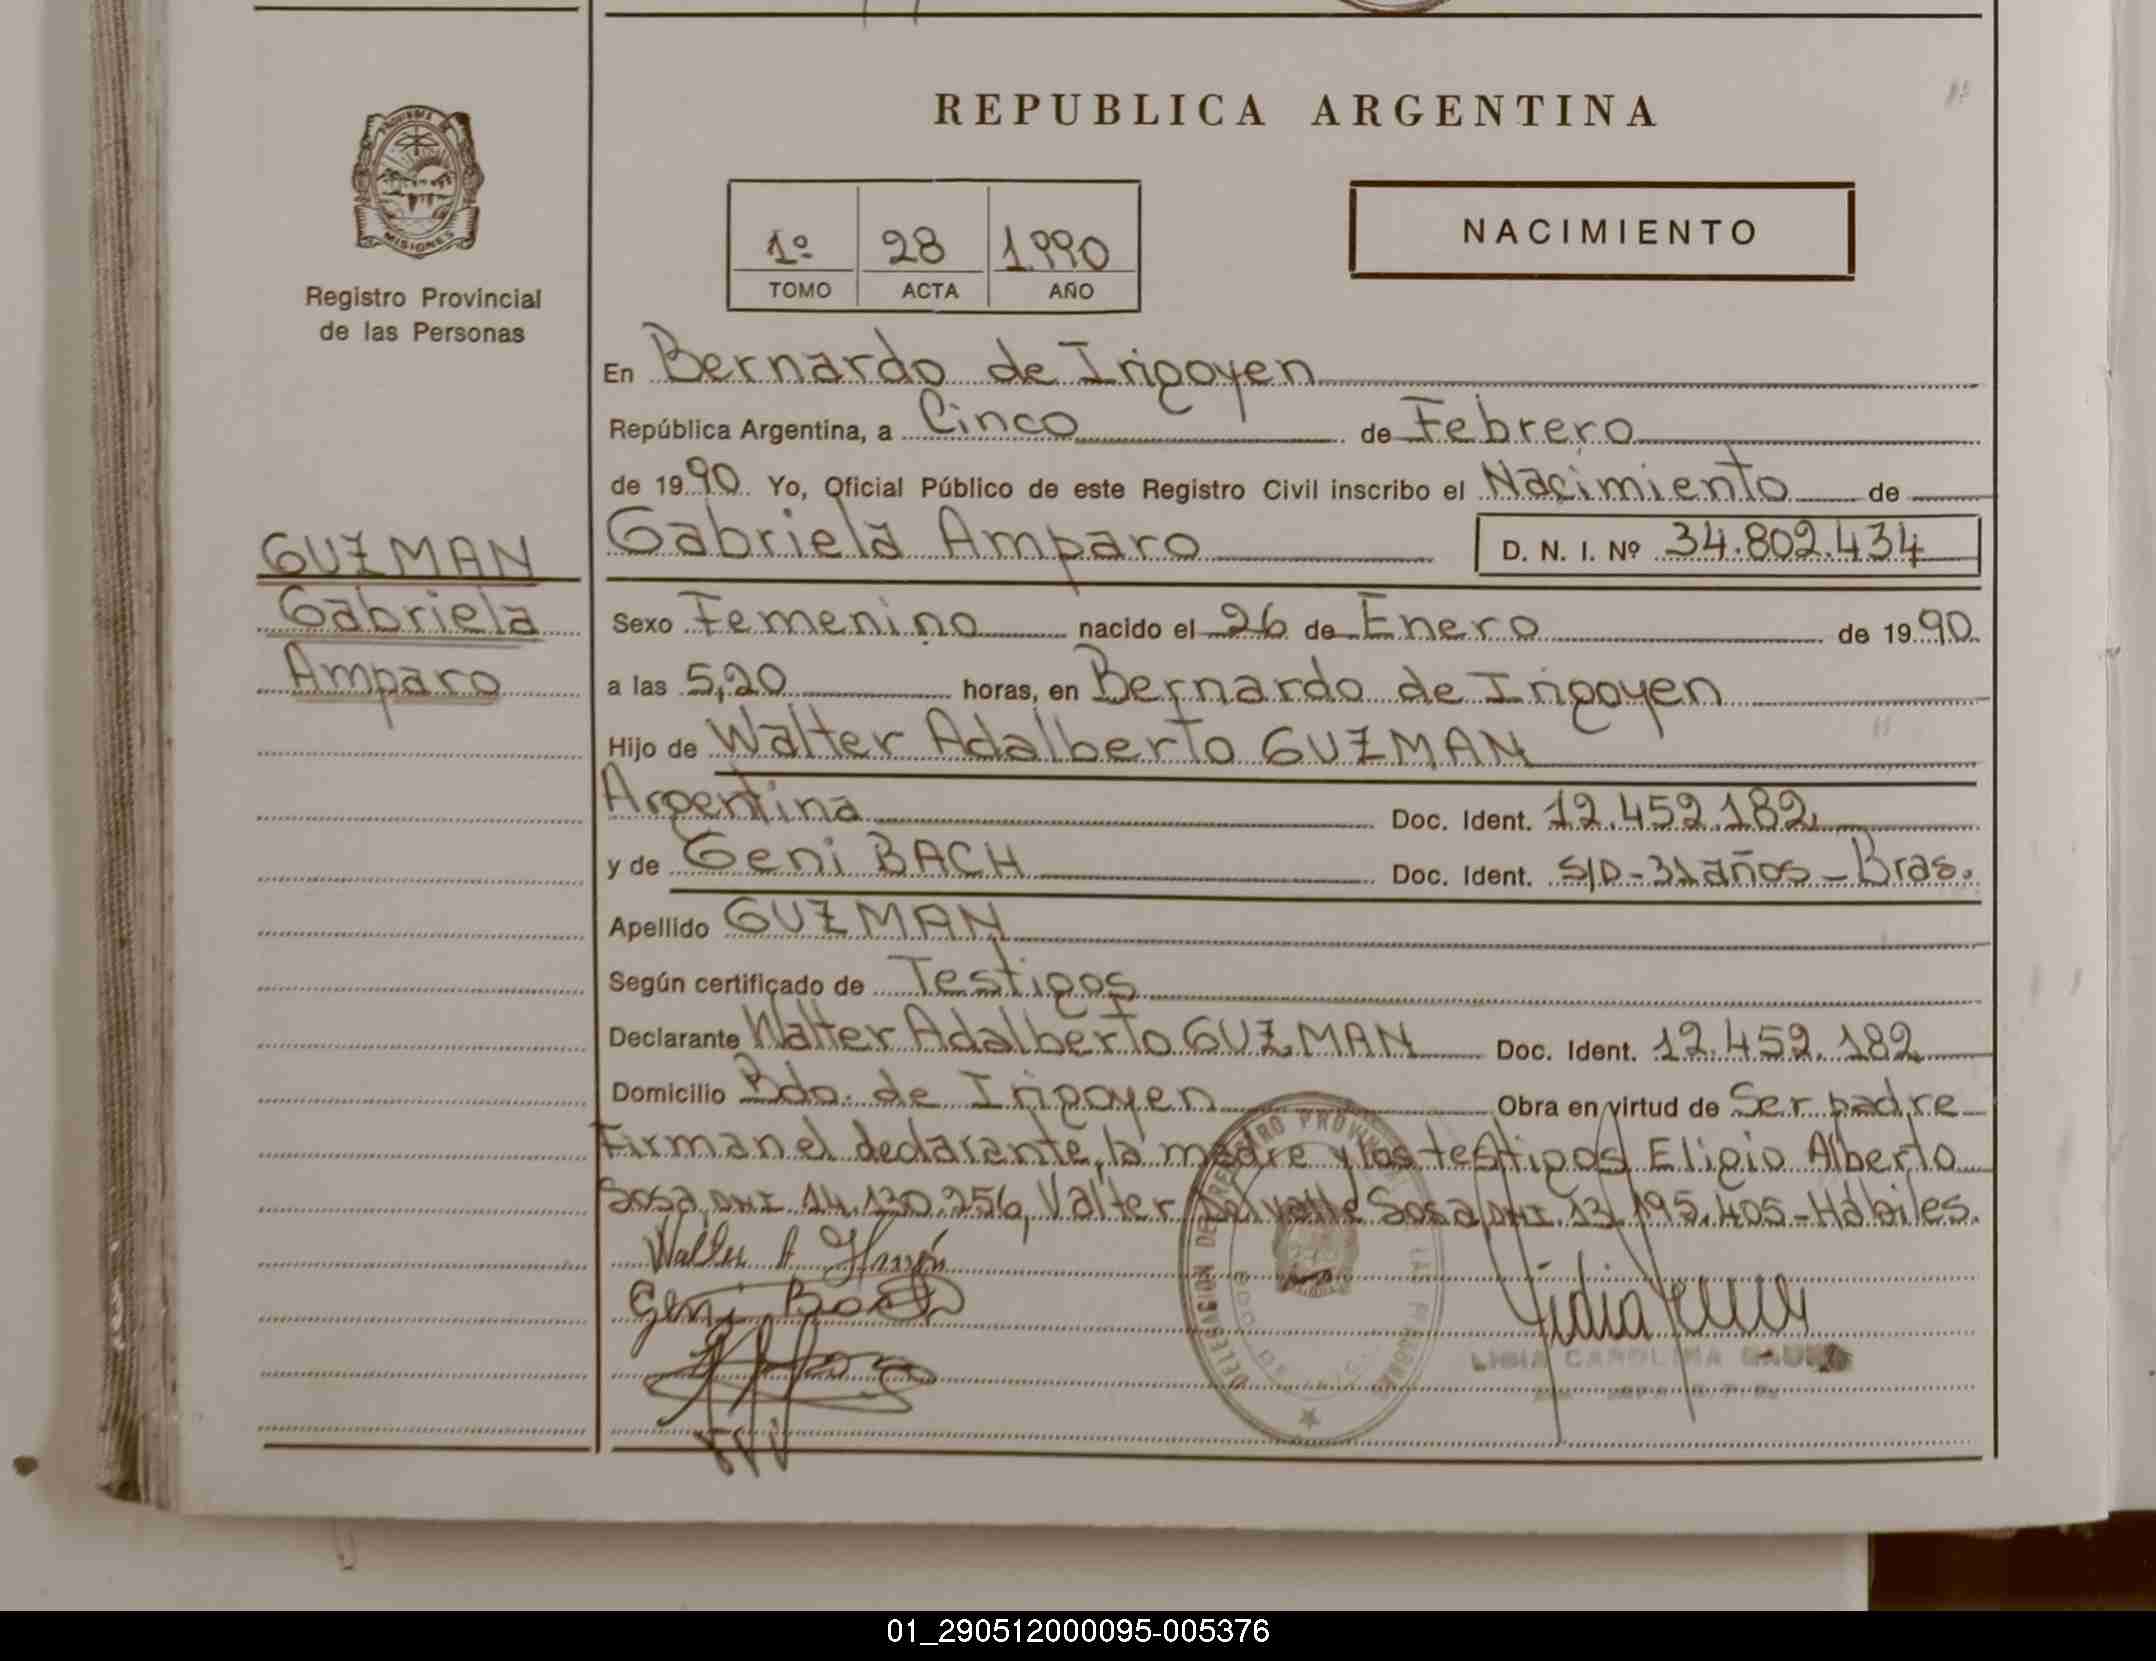 REPUBLICA ARGENTINA
PROVINCIA DE
MISIONES
Registro Provincial
de las Personas
1º 28 1990
TOMO ACTA AÑO
NACIMIENTO
En Bernardo de Irigoyen
República Argentina, a Cinco de Febrero
de 1990 Yo, Oficial Público de este Registro Civil inscribo el Nacimiento de
Gabriela Amparo D. N. I. Nº 34.802.434
GUZMAN
Gabriela
Amparo
Sexo Femenino nacido el 26 de Enero de 1990
a las 5,20 horas, en Bernardo de Irigoyen
Hijo de Walter Adalberto GUZMAN
Argentina Doc. Ident. 12.452.182
y de Geni BACH Doc. Ident. S/D-31 años-Bras.
Apellido GUZMAN
Según certificado de Testigos
Declarante Walter Adalberto GUZMAN Doc. Ident. 12.452.182
Domicilio Bdo. de Irigoyen Obra en virtud de Ser padre
Firman el declarante, la madre y los testigos Eligio Alberto
Sosa, DNI. 14.130.256, Valter Del valle Sosa DNI. 13.195.405-Hábiles.
Walter A
Geni Bach
LIDIA CAROLINA
01_290512000095-005376